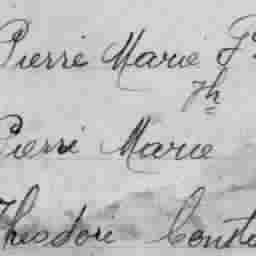 Pierre Marie F
Th
Pierre Marie
Théodore Const